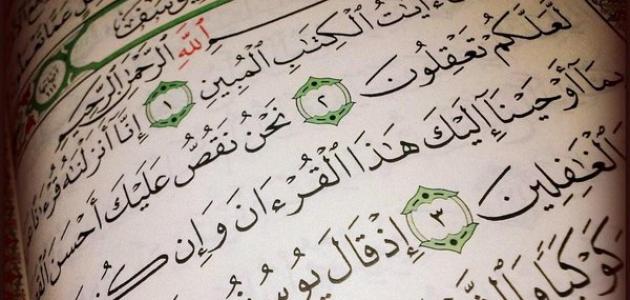 عَمَّا
يُوسُفَ
ٱللَّهِ ٱلرَّحْمَٰنِ ٱلرَّحِيمِ
ءَايَٰتُ ٱلْكِتَٰبِ ٱلْمُبِينِ ١ إِنَّآ أَنزَلْنَٰهُ قُرْءَٰنًا
لَّعَلَّكُمْ تَعْقِلُونَ ٢ نَحْنُ نَقُصُّ عَلَيْكَ أَحْسَنَ
بِمَآ أَوْحَيْنَآ إِلَيْكَ هَٰذَا ٱلْقُرْءَانَ وَإِن
ٱلْغَٰفِلِينَ ٣ إِذْ قَالَ يُوسُفُ
كَوْكَبًا